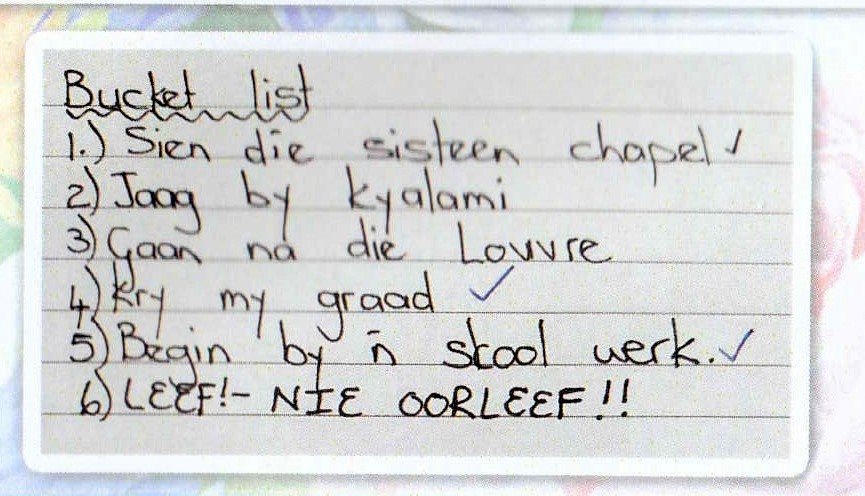 Bucket list
1.) Sien die sisteen chapel ✓
2) Jaag by kyalami
3) Gaan na die Louvre
4) Kry my graad ✓
5) Begin by 'n skool werk. ✓
6) LEEF!- NIE OORLEEF!!